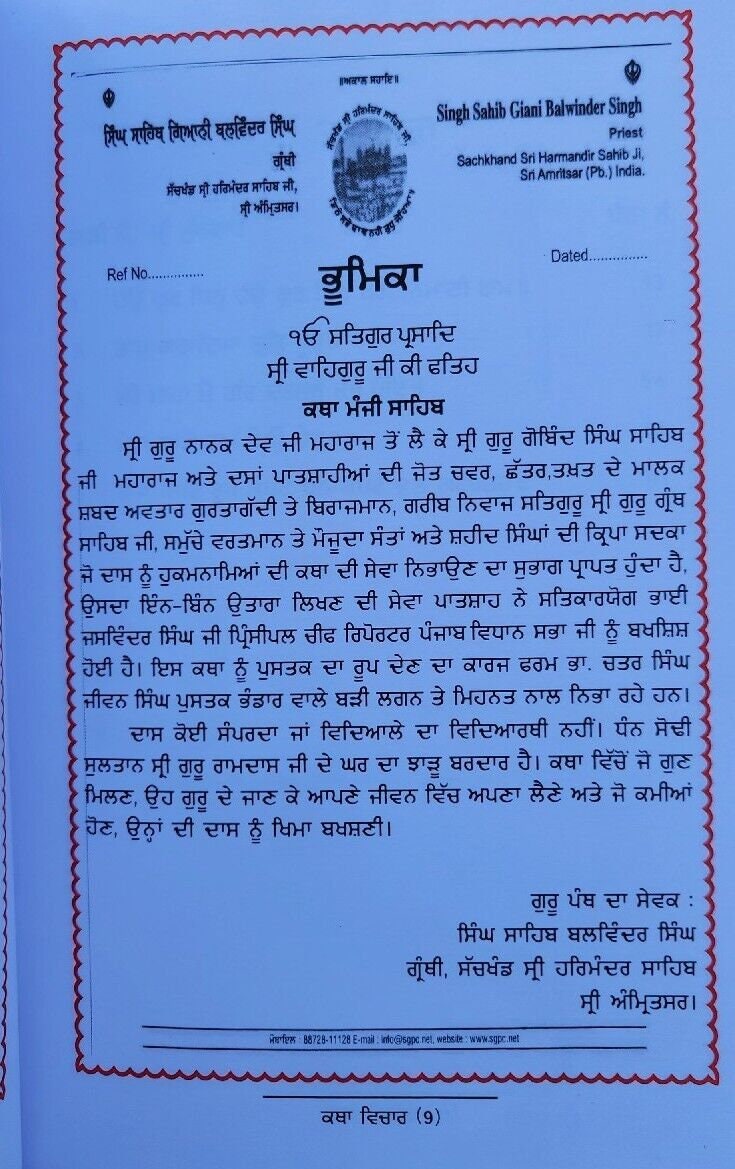 ॥ਅਕਾਲ ਸਹਾਇ॥
ਸਿੰਘ ਸਾਹਿਬ ਗਿਆਨੀ ਬਲਵਿੰਦਰ ਸਿੰਘ
ਗ੍ਰੰਥੀ
ਸੱਚਖੰਡ ਸ੍ਰੀ ਹਰਿਮੰਦਰ ਸਾਹਿਬ ਜੀ,
ਸ੍ਰੀ ਅੰਮ੍ਰਿਤਸਰ।
ਸੱਚਖੰਡ ਸ੍ਰੀ ਹਰਿਮੰਦਰ ਸਾਹਿਬ ਜੀ,
Singh Sahib Giani Balwinder Singh
Priest
Sachkhand Sri Harmandir Sahib Ji,
Sri Amritsar (Pb.) India.
Ref No..............
Dated..............
ਭੂਮਿਕਾ
ੴ ਸਤਿਗੁਰ ਪ੍ਰਸਾਦਿ
ਸ੍ਰੀ ਵਾਹਿਗੁਰੂ ਜੀ ਕੀ ਫਤਿਹ
ਕਥਾ ਮੰਜੀ ਸਾਹਿਬ
ਸ੍ਰੀ ਗੁਰੂ ਨਾਨਕ ਦੇਵ ਜੀ ਮਹਾਰਾਜ ਤੋਂ ਲੈ ਕੇ ਸ੍ਰੀ ਗੁਰੂ ਗੋਬਿੰਦ ਸਿੰਘ ਸਾਹਿਬ
ਜੀ ਮਹਾਰਾਜ ਅਤੇ ਦਸਾਂ ਪਾਤਸ਼ਾਹੀਆਂ ਦੀ ਜੋਤ ਚਵਰ, ਛੱਤਰ,ਤਖ਼ਤ ਦੇ ਮਾਲਕ
ਸ਼ਬਦ ਅਵਤਾਰ ਗੁਰਤਾਗੱਦੀ ਤੇ ਬਿਰਾਜਮਾਨ, ਗਰੀਬ ਨਿਵਾਜ ਸਤਿਗੁਰੂ ਸ੍ਰੀ ਗੁਰੂ ਗ੍ਰੰਥ
ਸਾਹਿਬ ਜੀ, ਸਮੁੱਚੇ ਵਰਤਮਾਨ ਤੇ ਮੌਜੂਦਾ ਸੰਤਾਂ ਅਤੇ ਸ਼ਹੀਦ ਸਿੰਘਾਂ ਦੀ ਕ੍ਰਿਪਾ ਸਦਕਾ
ਜੋ ਦਾਸ ਨੂੰ ਹੁਕਮਨਾਮਿਆਂ ਦੀ ਕਥਾ ਦੀ ਸੇਵਾ ਨਿਭਾਉਣ ਦਾ ਸੁਭਾਗ ਪ੍ਰਾਪਤ ਹੁੰਦਾ ਹੈ,
ਉਸਦਾ ਇੰਨ-ਬਿੰਨ ਉਤਾਰਾ ਲਿਖਣ ਦੀ ਸੇਵਾ ਪਾਤਸ਼ਾਹ ਨੇ ਸਤਿਕਾਰਯੋਗ ਭਾਈ
ਜਸਵਿੰਦਰ ਸਿੰਘ ਜੀ ਪ੍ਰਿੰਸੀਪਲ ਚੀਫ ਰਿਪੋਰਟਰ ਪੰਜਾਬ ਵਿਧਾਨ ਸਭਾ ਜੀ ਨੂੰ ਬਖਸ਼ਿਸ਼
ਹੋਈ ਹੈ। ਇਸ ਕਥਾ ਨੂੰ ਪੁਸਤਕ ਦਾ ਰੂਪ ਦੇਣ ਦਾ ਕਾਰਜ ਫਰਮ ਭਾ. ਚਤਰ ਸਿੰਘ
ਜੀਵਨ ਸਿੰਘ ਪੁਸਤਕ ਭੰਡਾਰ ਵਾਲੇ ਬੜੀ ਲਗਨ ਤੇ ਮਿਹਨਤ ਨਾਲ ਨਿਭਾ ਰਹੇ ਹਨ।
ਦਾਸ ਕੋਈ ਸੰਪਰਦਾ ਜਾਂ ਵਿਦਿਆਲੇ ਦਾ ਵਿਦਿਆਰਥੀ ਨਹੀਂ। ਧੰਨ ਸੋਢੀ
ਸੁਲਤਾਨ ਸ੍ਰੀ ਗੁਰੂ ਰਾਮਦਾਸ ਜੀ ਦੇ ਘਰ ਦਾ ਝਾੜੂ ਬਰਦਾਰ ਹੈ। ਕਥਾ ਵਿੱਚੋਂ ਜੋ ਗੁਣ
ਮਿਲਣ, ਉਹ ਗੁਰੂ ਦੇ ਜਾਣ ਕੇ ਆਪਣੇ ਜੀਵਨ ਵਿੱਚ ਅਪਣਾ ਲੈਣੇ ਅਤੇ ਜੋ ਕਮੀਆਂ
ਹੋਣ, ਉਨ੍ਹਾਂ ਦੀ ਦਾਸ ਨੂੰ ਖਿਮਾ ਬਖਸ਼ਣੀ।
ਗੁਰੂ ਪੰਥ ਦਾ ਸੇਵਕ :
ਸਿੰਘ ਸਾਹਿਬ ਬਲਵਿੰਦਰ ਸਿੰਘ
ਗ੍ਰੰਥੀ, ਸੱਚਖੰਡ ਸ੍ਰੀ ਹਰਿਮੰਦਰ ਸਾਹਿਬ
ਸ੍ਰੀ ਅੰਮ੍ਰਿਤਸਰ।
ਮੋਬਾਇਲ : 88728-11128 E-mail : info@sgpc.net, website : www.sgpc.net
ਕਥਾ ਵਿਚਾਰ (9)